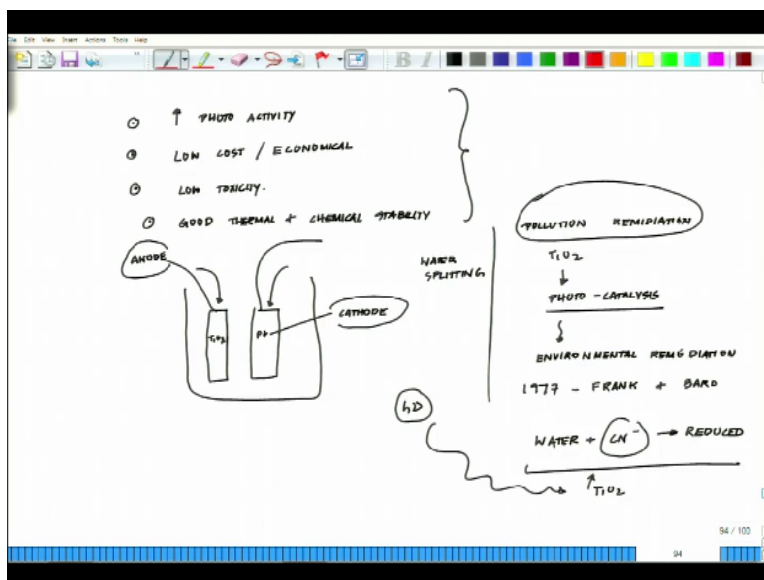 File Edit View Insert Actions Tools Help
B I
↑ PHOTO ACTIVITY
LOW COST / ECONOMICAL
LOW TOXICITY.
GOOD THERMAL + CHEMICAL STABILITY
ANODE
TiO2
Pt
CATHODE
WATER
SPLITTING
POLLUTION REMIDIATION
TiO2
↓
PHOTO-CATALYSIS
ENVIRONMENTAL REMEDIATION
1977 - FRANK + BARD
WATER + CN⁻ → REDUCED
↑ TiO2
94 / 100
94